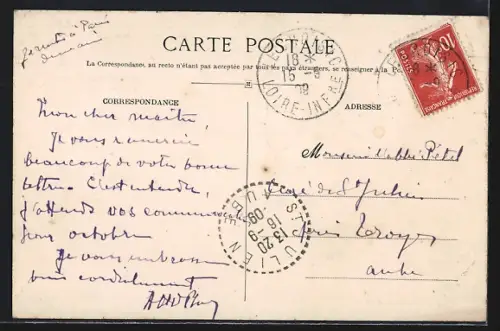 je rentre à Paris
demain
CARTE POSTALE
La Correspondance, au recto n'étant pas acceptée par tout les pays étrangers, se renseigner à la Po
CORRESPONDANCE
ADRESSE
Mon cher maître,
Je vous remercie
beaucoup de votre bonne
lettre. C'est entendu,
j'attends vos commu
pour octobre
Je vous embrasse
bien cordialement
Monsieur l'abbé
Curé de St Julien
près Troyes
Aube
LOIRE-INFRE
18 *
15 -9
09
REPUBLIQUE FRANÇAISE
10
POSTES
ST JULIEN
AUBE
13 20
16 -9
09